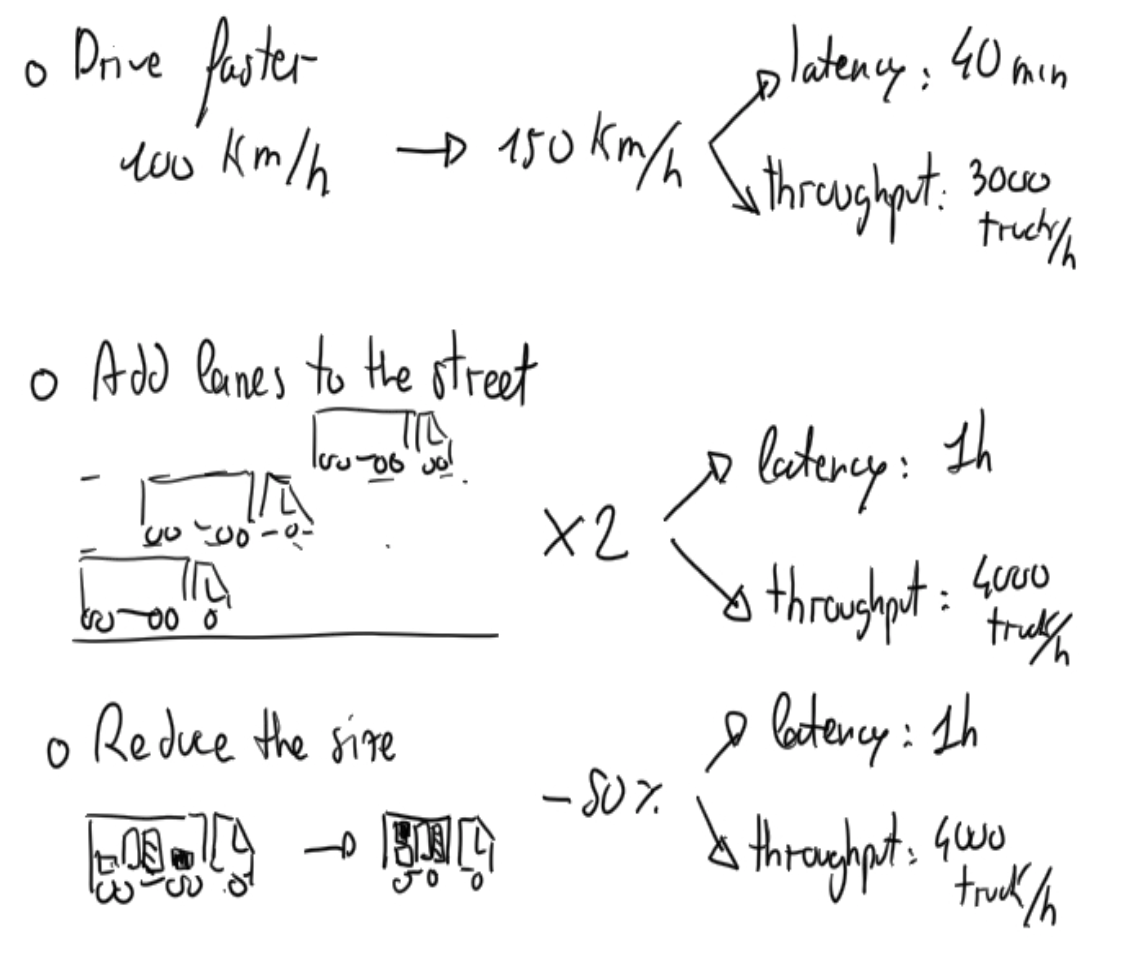 o Drive faster
100 Km/h → 150 Km/h
latency: 40 min
throughput: 3000
truck/h
o Add lanes to the street
X2
latency: 1h
throughput: 4000
truck/h
o Reduce the size
-50%
latency: 1h
throughput: 4000
truck/h